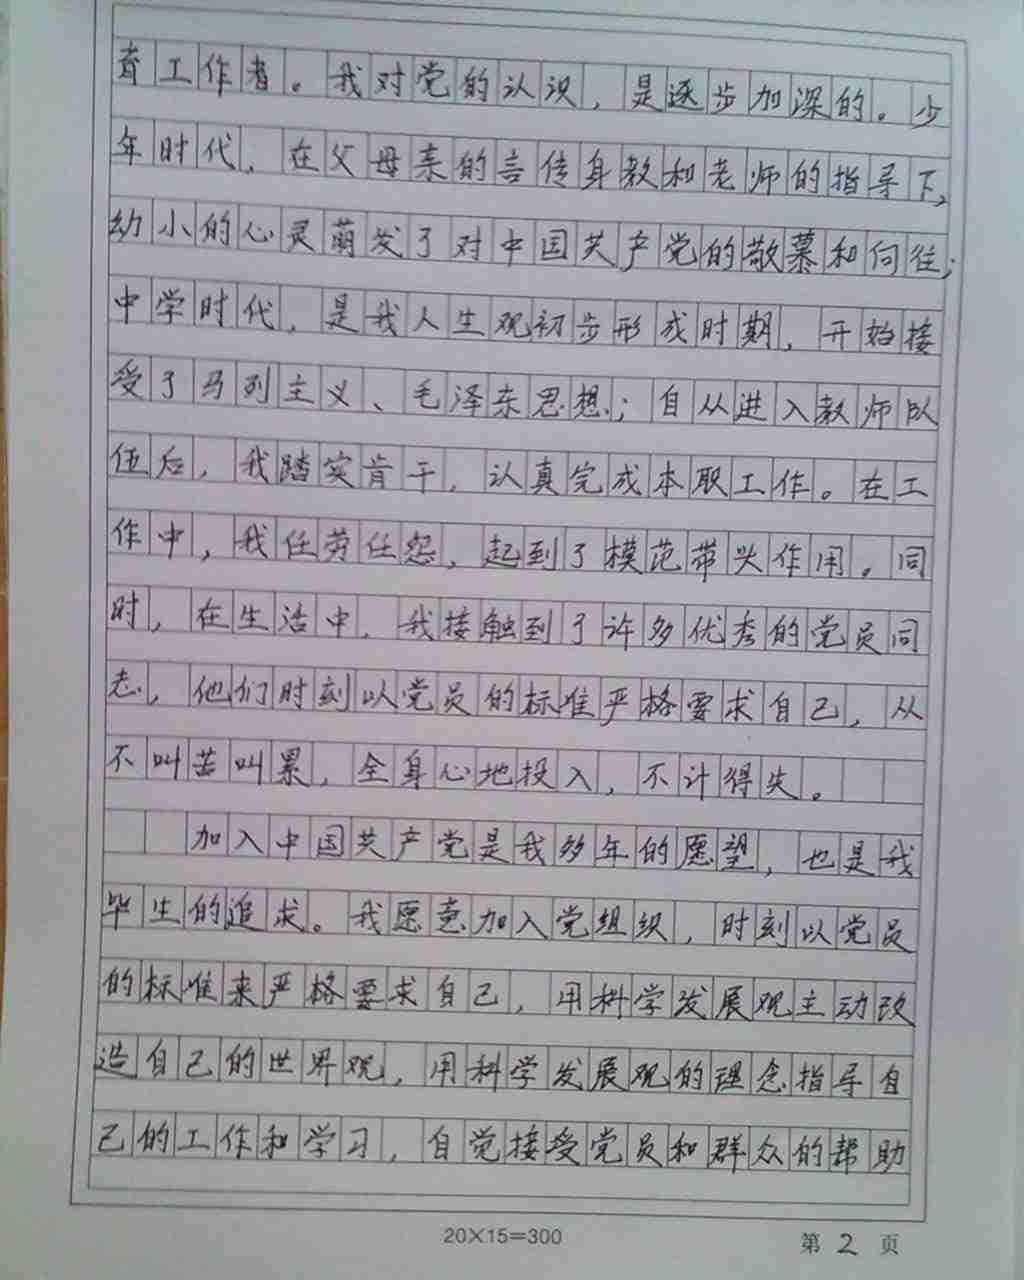 育工作者。我对党的认识，是逐步加深的。少
年时代，在父母亲的言传身教和老师的指导下，
幼小的心灵萌发了对中国共产党的敬慕和向往；
中学时代，是我人生观初步形成时期，开始接
受了马列主义、毛泽东思想；自从进入教师队
伍后，我踏实肯干，认真完成本职工作。在工
作中，我任劳任怨，起到了模范带头作用。同
时，在生活中，我接触到了许多优秀的党员同
志，他们时刻以党员的标准严格要求自己，从
不叫苦叫累，全身心地投入，不计得失。
加入中国共产党是我多年的愿望，也是我
毕生的追求。我愿意加入党组织，时刻以党员
的标准来严格要求自己，用科学发展观主动改
造自己的世界观，用科学发展观的理念指导自
己的工作和学习，自觉接受党员和群众的帮助
20×15=300
第 2 页